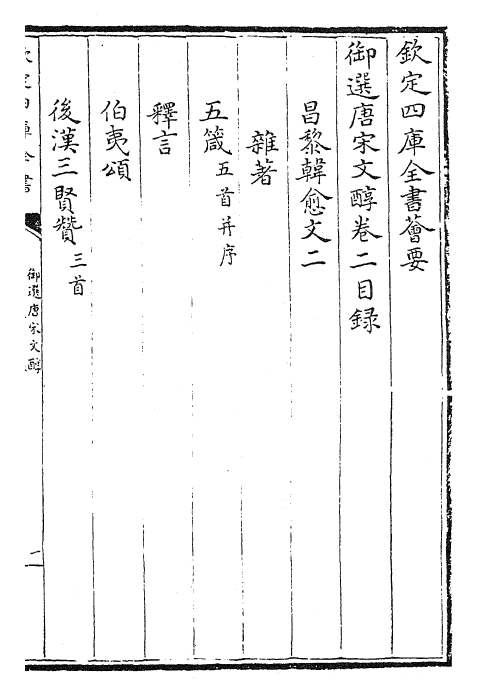 欽定四庫全書薈要
御選唐宋文醇卷二目録
昌黎韓愈文二
雜著
五箴五首并序
釋言
伯夷頌
後漢三賢贊三首
欽定四庫全書
御選唐宋文醇
二